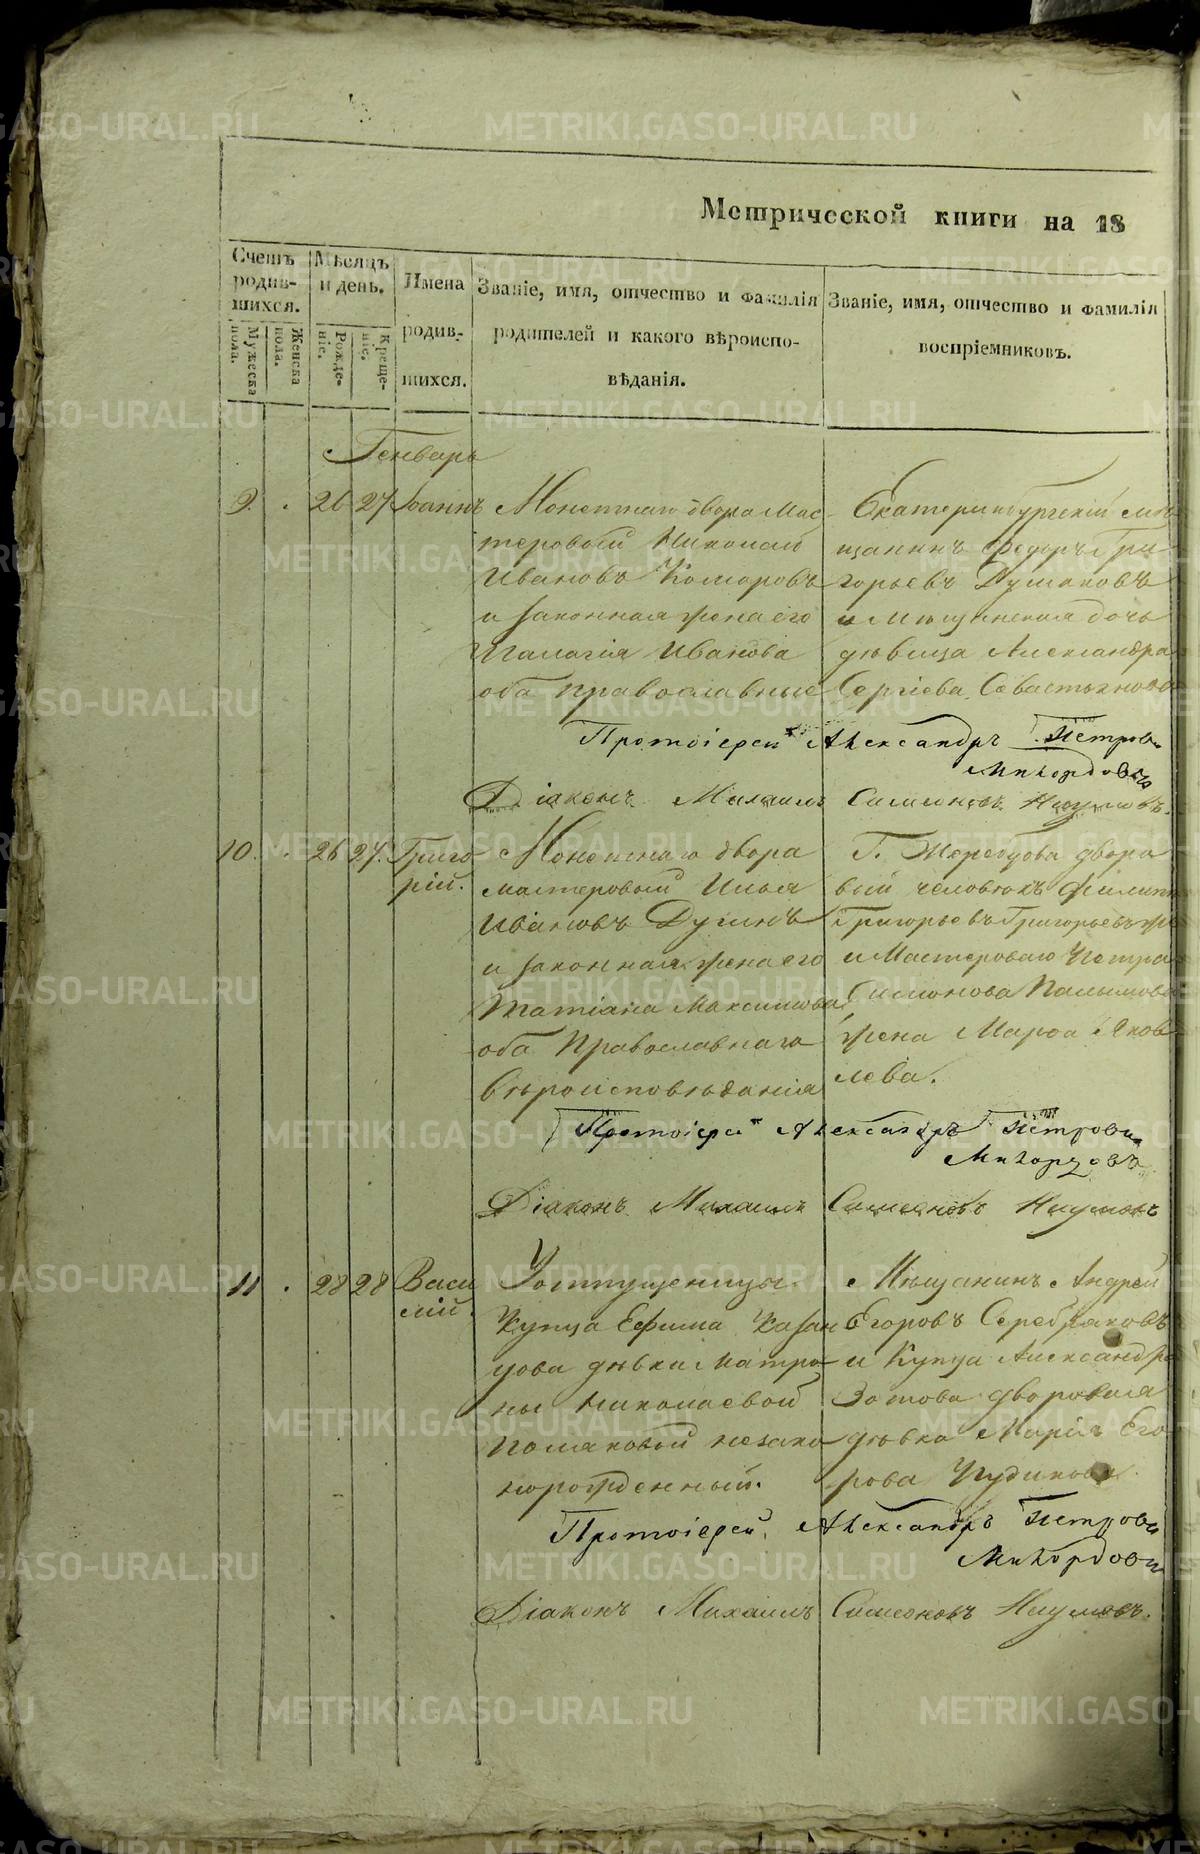 Метрической книги на 18
Счетъ родив-шихся.
Мужеска пола.
Женска пола.
Мѣсяцъ и день.
Рожде-ніе.
Креще-ніе.
Имена родив-шихся.
Званіе, имя, отчество и фамилія
родителей и какого вѣроиспо-
вѣданія.
Званіе, имя, отчество и фамилія
воспріемниковъ.
Генварь
9. 26 27 Іоаннъ
Монетнаго двора мас-
теровой Николай
Ивановъ Комаровъ
и законная жена его
Палагія Иванова
оба православные
Екатеринбургскій мѣ
щанинъ Федоръ Гри
горьевъ
и Мѣщанская дочь
дѣвица Александра
Сергіева Севастьянова
Протоіерей Александръ Петровъ
Діаконъ Михаилъ Симеоновъ Наумовъ.
10. 26 27. Григо
рій.
Монетнаго двора
мастеровой Илья
Ивановъ Дугинъ
и законная жена его
Татіана Максимова
оба Православнаго
вѣроисповѣданія
Г. Жеребцова дворо
вый человѣкъ Филиппъ
Григорьевъ Григорьевъ же
и Мастероваго Петра
Симонова
жена Марфа Яков
лева.
Протоіерей Александръ Петровъ
Діаконъ Михаилъ Симеоновъ Наумовъ
11. 28 28 Васи
лій.
У отпущенницы
Купца Ефима Казан
цова дѣвки Матро
ны Николаевой
Поляковой незако
норожденный.
Мѣщанинъ Андрей
Егоровъ Серебряковъ
и Купца Александра
Зотова дворовая
дѣвка Марія Его
рова
Протоіерей, Александръ Петровъ
Діаконъ Михаилъ Симеоновъ Наумовъ.
METRIKI.GASO-URAL.RU